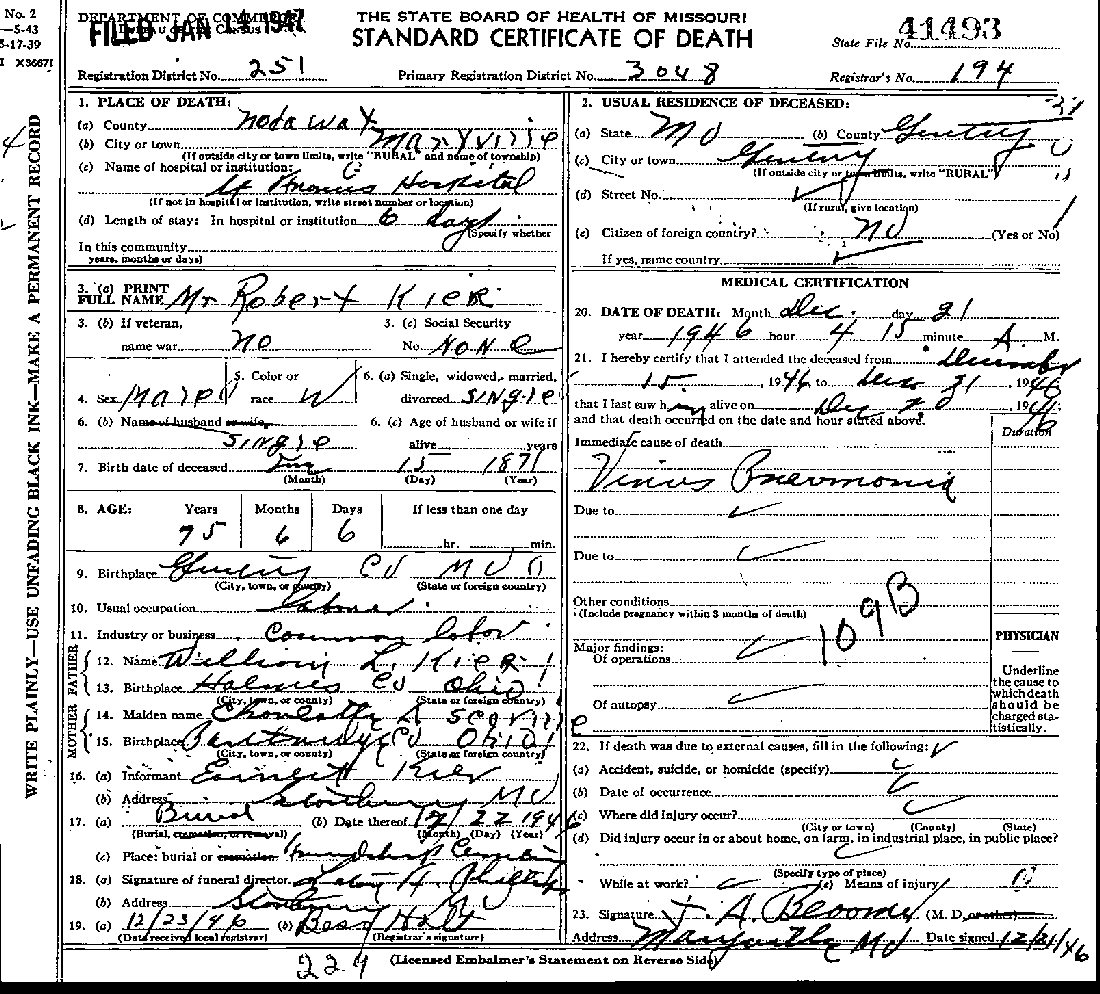 No. 2
—5-43
5-17-39
I X36671
DEPARTMENT OF COMMERCE
FILED JAN 14 1947
THE STATE BOARD OF HEALTH OF MISSOURI
STANDARD CERTIFICATE OF DEATH
State File No. 41493
Registration District No. 251
Primary Registration District No. 3048
Registrar's No. 194
WRITE PLAINLY—USE UNFADING BLACK INK—MAKE A PERMANENT RECORD
1. PLACE OF DEATH:
(a) County Nodaway
(b) City or town Maryville
(If outside city or town limits, write "RURAL" and name of township)
(c) Name of hospital or institution:
St Francis Hospital
(If not in hospital or institution, write street number or location)
(d) Length of stay: In hospital or institution 6 days
(Specify whether
In this community
years, months or days)
3. (a) PRINT FULL NAME Mr Robert Kier
3. (b) If veteran, name war NO
3. (c) Social Security No. NONE
4. Sex Male
5. Color or race W
6. (a) Single, widowed, married, divorced Single
6. (b) Name of husband or wife Single
6. (c) Age of husband or wife if alive years
7. Birth date of deceased 15 1871
(Month) (Day) (Year)
8. AGE: Years Months Days If less than one day
75 6 6 hr. min.
9. Birthplace Gentry Co MO
(City, town, or county) (State or foreign country)
10. Usual occupation Laborer
11. Industry or business Common labor
FATHER
12. Name William L. Kier
13. Birthplace Holmes Co Ohio
(City, town, or county) (State or foreign country)
MOTHER
14. Maiden name A Scoville
15. Birthplace Co Ohio
(City, town, or county) (State or foreign country)
16. (a) Informant Kier
(b) Address Stanberry MO
17. (a) Burial (b) Date thereof 12 22 1946
(Burial, cremation, or removal) (Month) (Day) (Year)
(c) Place: burial or cremation
18. (a) Signature of funeral director
(b) Address Stanberry MO
19. (a) 12/23/46 (b) Bess Holt
(Date received local registrar) (Registrar's signature)
229
(Licensed Embalmer's Statement on Reverse Side)
2. USUAL RESIDENCE OF DECEASED:
(a) State MO (b) County Gentry
(c) City or town Gentry
(If outside city or town limits, write "RURAL")
(d) Street No.
(If rural, give location)
(e) Citizen of foreign country? NO (Yes or No)
If yes, name country
MEDICAL CERTIFICATION
20. DATE OF DEATH: Month Dec. day 21
year 1946 hour 4 15 minute A. M.
21. I hereby certify that I attended the deceased from December
15, 1946 to Dec 21, 1946
that I last saw him alive on Dec 20, 1946
and that death occurred on the date and hour stated above.
Duration
Immediate cause of death
Virus Pneumonia
Due to
Due to
Other conditions
(Include pregnancy within 3 months of death)
109B
Major findings:
Of operations
Of autopsy
PHYSICIAN
Underline
the cause to
which death
should be
charged sta-
tistically.
22. If death was due to external causes, fill in the following:
(a) Accident, suicide, or homicide (specify)
(b) Date of occurrence
(c) Where did injury occur?
(City or town) (County) (State)
(d) Did injury occur in or about home, on farm, in industrial place, in public place?
(Specify type of place)
While at work? (e) Means of injury
23. Signature J. A. Bloomer (M. D. or other)
Address Maryville MO Date signed 12/21/46